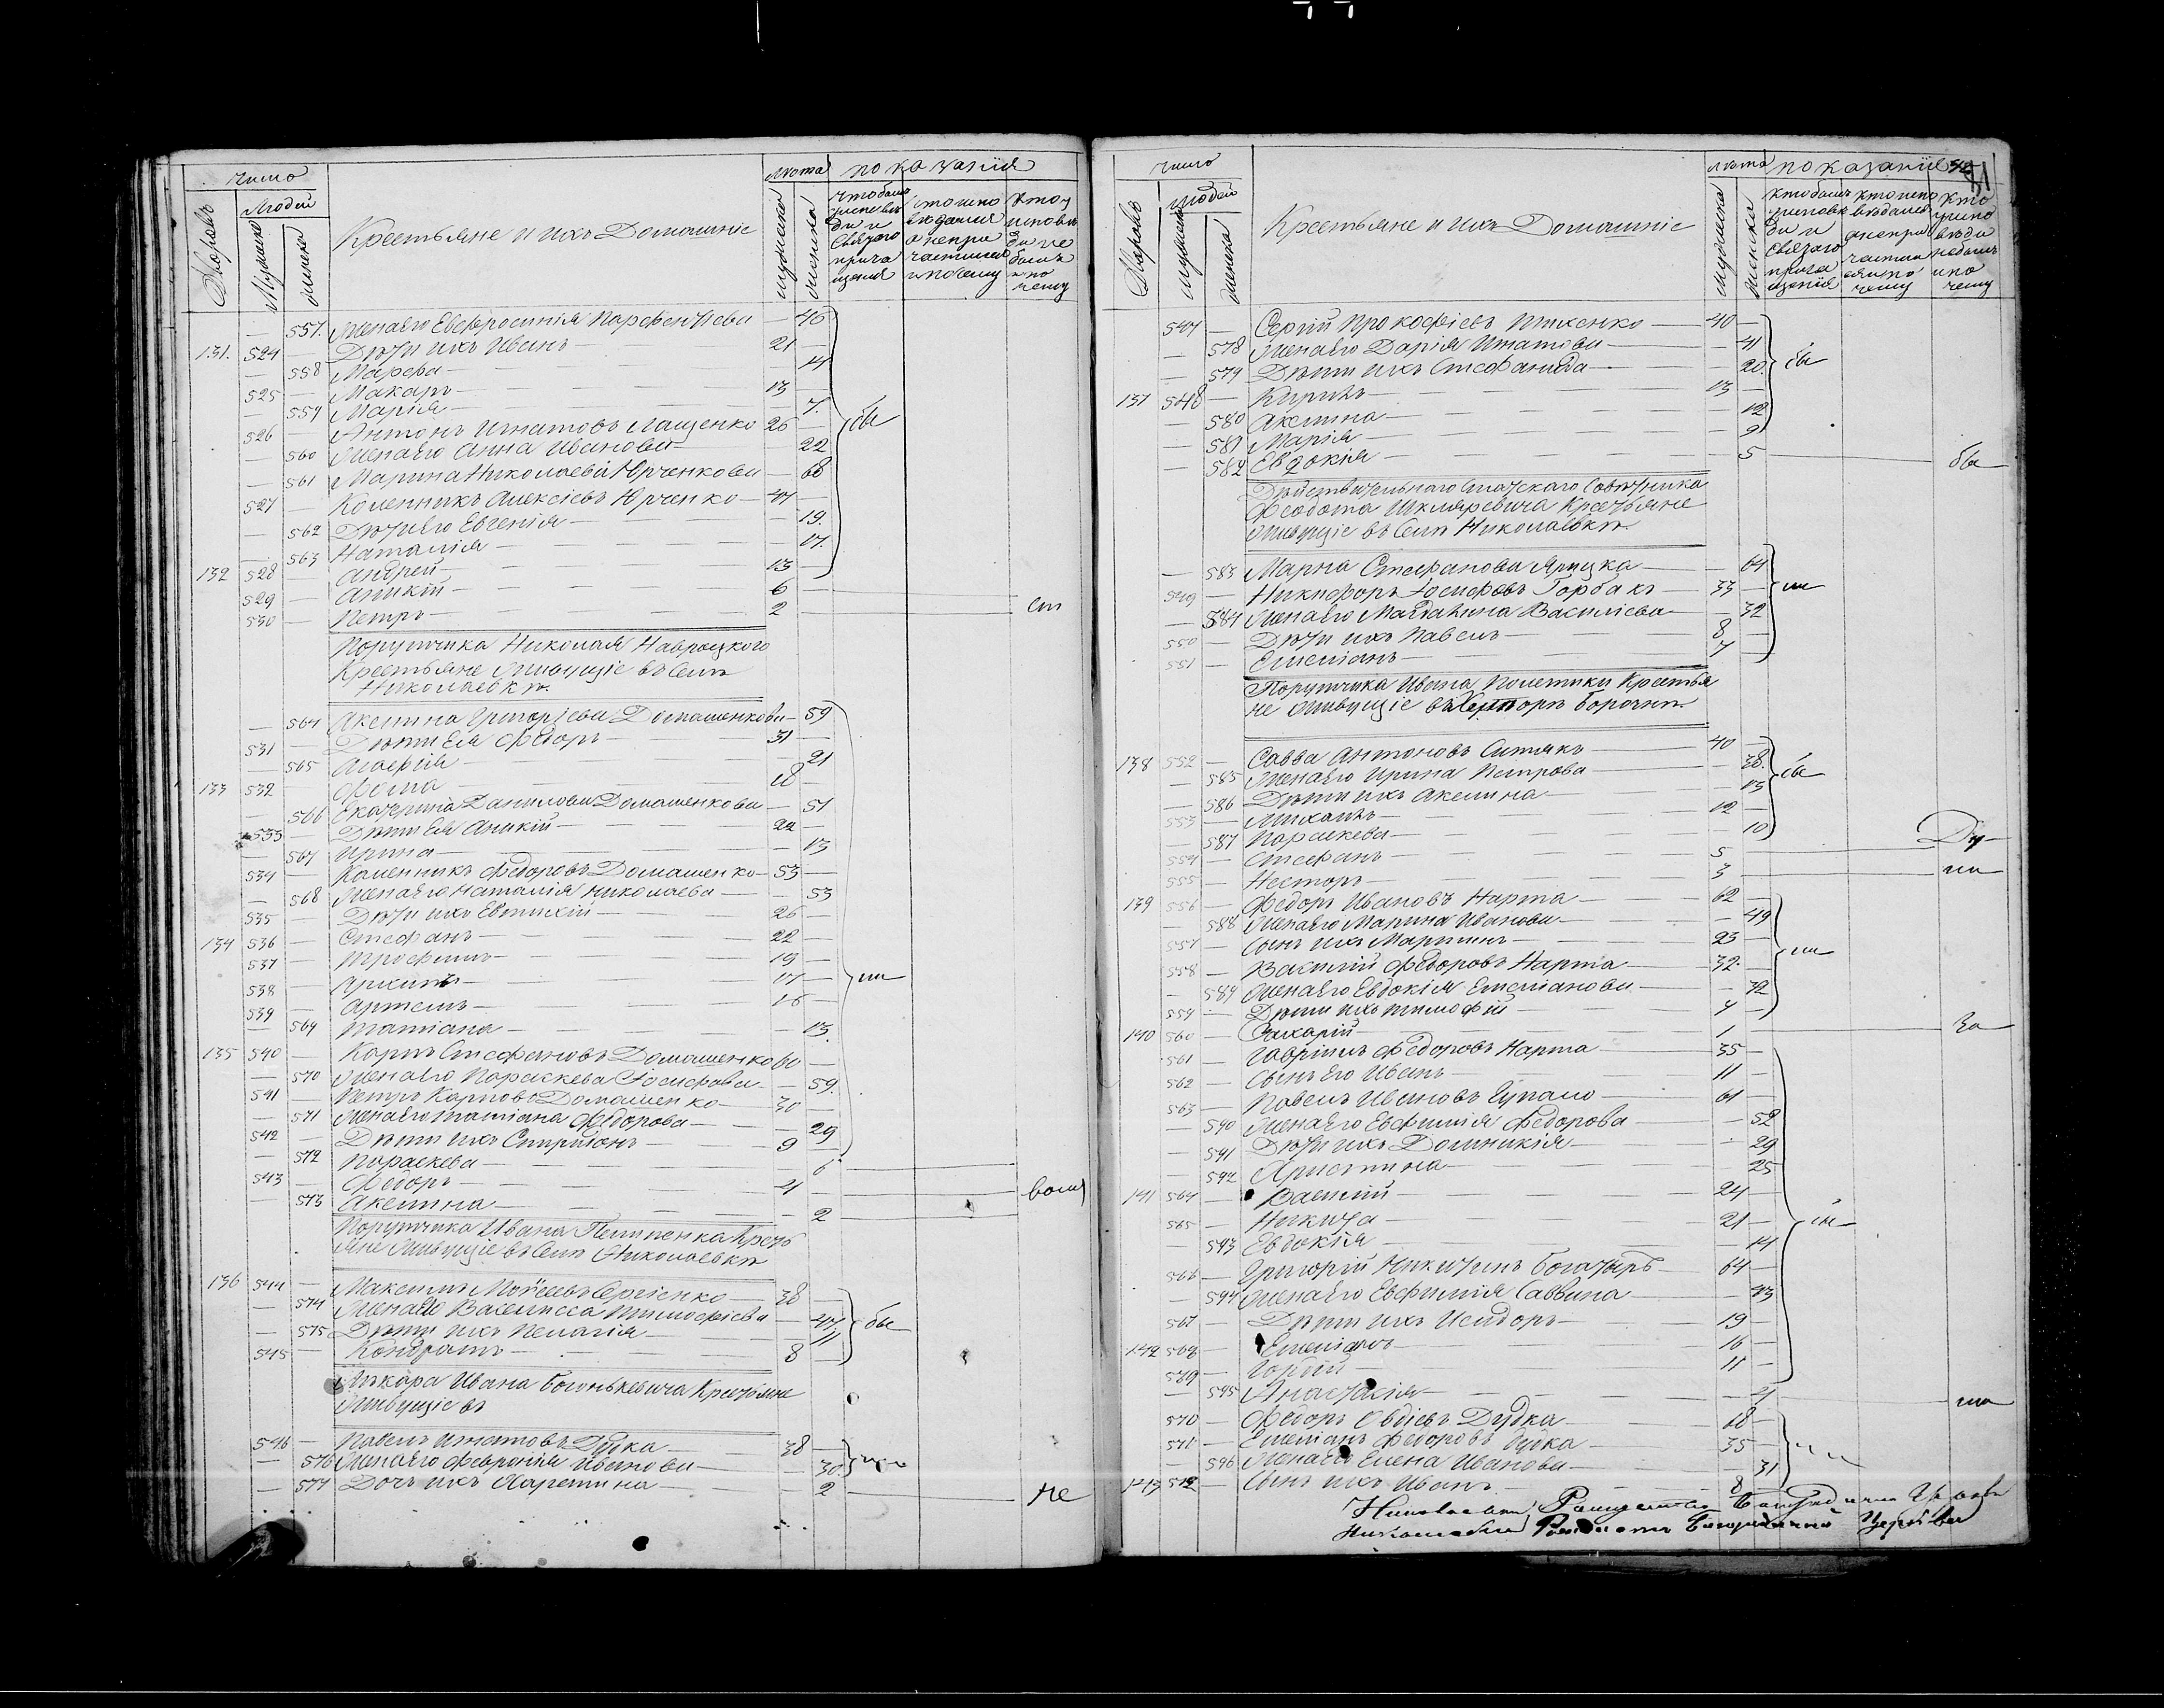 число
Дворовъ
Людей
Мужеска
женска
Крестьяне и ихъ Домашніе
лѣта
мужеска
женска
показанія
557. Жена его Евфросинія Парфентіева — 46
131. 524 Дѣти ихъ Иванъ — 21
558 Марфа — 14
525 Макаръ — 13
559 Марія — 7.
526 Антонъ Игнатовъ Лащенко 26
560 Жена его Анна Иванова — 22
561 Марина Николаева Юрченкова — 68
527 Калленикъ Алексіевъ Юрченко — 47
562 Дѣти его Евгенія — 19.
563 Наталія — 17.
132 528 Андрей — 13
529 Аникій — 6
530 Петръ — 2
Порутчика Николая Навроцкого
Крестьяне живущіе въ Селѣ
Николаевкѣ.
564 Акелина Григоріева Домашенкова — 59
531 Дѣти Ея Федоръ — 31
565 Агафія — 21
133 532 Фома — 18
566 Екатерина Данилова Домашенкова — 51
533 Дѣти Ея Аникій — 22
567 Ирина — 13
534 Каленникъ Федоровъ Домашенко — 53
568 Жена его Наталія Николаева — 53
535 Дѣти ихъ Евтихій — 26
134 536 Стефанъ — 22
537 Трофимъ — 19
538 Архипъ — 17
539 Артемъ — 16
569 Татіана — 13.
135 540 Карпъ Стефановъ Домашенко 60
570 Жена его Параскева Іосифова — 59.
541 Петръ Карповъ Домашенко — 30
571 Жена его Татіана Федорова — 29
542 Дѣти ихъ Спиридонъ — 9
572 Параскева — 6
543 Федоръ — 4
573 Акелина — 2
Порутчика Ивана Пелипенка Крестьяне живущіе въ Селѣ Николаевкѣ
136 544 Максимъ Моѵсеевъ Сергіенко — 38
574 Жена его Васелисса Тимофіева — 47.
575 Дѣти ихъ Пелагія — 11
545 Кондратъ — 8
Лѣкара Ивана Богонькевича Крестьяне
живущіе въ
546 Павелъ Игнатовъ Дудка — 38
576 Жена его Февронія Иванова — 30
577 Дочь ихъ Харетина — 2
число
Дворовъ
людей
мужеска
женска
Крестьяне и ихъ Домашніе
лѣта
мужеска
женска
показанія
547 Сергій Прокофіевъ Тихенко — 40
578 Жена его Дарія Игнатова — 41
579 Дѣти ихъ Стефанида — 20.
137 548 Кирилъ — 13
580 Акелина — 12
581 Марія — 9
582 Евдокія — 5
Дѣйствительнаго Статскаго Совѣтника
Феодота Шкляревича Крестьяне
живущіе въ Селѣ Николаевкѣ.
583 Марна Стефанова Ярицка — 64
549 Никифоръ Іосифовъ Горбакъ — 33
584 Жена его Магдалина Василіева — 32
550 Дѣти ихъ Павелъ — 8
551 Емеліанъ — 7
Порутчика Ивана Полетики Крестья
не живущіе въ Хуторѣ Борочкѣ.
138 552 Савва Антоновъ Ситякъ — 40
585 Жена его Ирина Петрова — 38.
586 Дѣти ихъ Акелина — 13
553 Михаилъ — 12
587 Параскева — 10
554 Стефанъ — 5
555 Несторъ — 3
139 556 Федоръ Ивановъ Нарта — 62
588 Жена его Марина Иванова — 49
557 Сынъ ихъ Мартинъ — 23
558 Василій Федоровъ Нарта — 32.
589 Жена его Евдокія Емеліанова — 32
559 Дѣти ихъ Тимофій — 4
140 560 Захарій — 1
561 Гавріилъ Федоровъ Нарта — 35
562 Сынъ Его Иванъ — 11
563 Павелъ Ивановъ Цупало — 61
590 Жена его Евфимія Федорова — 52
591 Дѣти ихъ Домникія — 29
592 Христина — 25
141 564 Василій — 24
565 Никита — 21
593 Евдокія — 14
566 Григорій Никитинъ Богатырь — 64
594 Жена его Евфимія Саввина — 43
567 Дѣти ихъ Исидоръ — 19
142 568 Емеліанъ — 16
569 Гордій — 11
595 Анастасія — 4
570 Федоръ Овдіевъ Дудка — 18
571 Емеліанъ Федоровъ Дудка — 35
596 Жена его Елена Иванова — 31
143 572 Сынъ ихъ Иванъ — 8